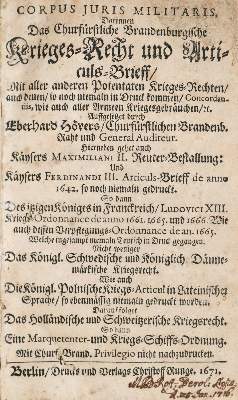 CORPUS JURIS MILITARIS,
Darinnen
Das Churfürstliche Brandenburgische
Krieges-Recht und Arti-
culs-Brieff/
Mit aller anderen Potentaten Krieges-Rechten/
auch denen/ so noch niemaln in Druck kommen/ Concordan-
tiis, wie auch aller Armeen Kriegesgebräuchen/ ꝛc.
Auffgesetzet durch
Eberhard Höyers/ Churfürstlichen Brandenb.
Raht und General Auditeur.
Hierneben gehet auch
Käysers MAXIMILIANI II. Reuter-Bestallung:
Und
Käysers FERDINANDI III. Articuls-Brieff de anno
1642. so noch niemaln gedruckt.
So dann
Des itzigen Königes in Franckreich/ LUDOVICI XIII.
Krieges-Ordonnance de anno 1661. 1665. und 1666. Wie
auch dessen Verpflegungs-Ordonnance de an. 1665.
Welche insgesampt niemaln Teutsch in Druck gegangen.
Nicht weniger
Das Königl. Schwedische und Königlich Dänne-
märkische Kriegesrecht.
Wie auch
Die Königl. Polnische Kriegs-Articul in Lateinischer
Sprache/ so ebenmässig niemaln gedruckt worden.
Darauf folget
Das Holländische und Schweitzerische Kriegesrecht.
So dann
Eine Marquetenter- und Kriegs-Schiffs-Ordnung.
Mit Churf. Brand. Privilegio nicht nachzudrucken.
Berlin/ Druckts und Verlags Christoff Runge. 1671.